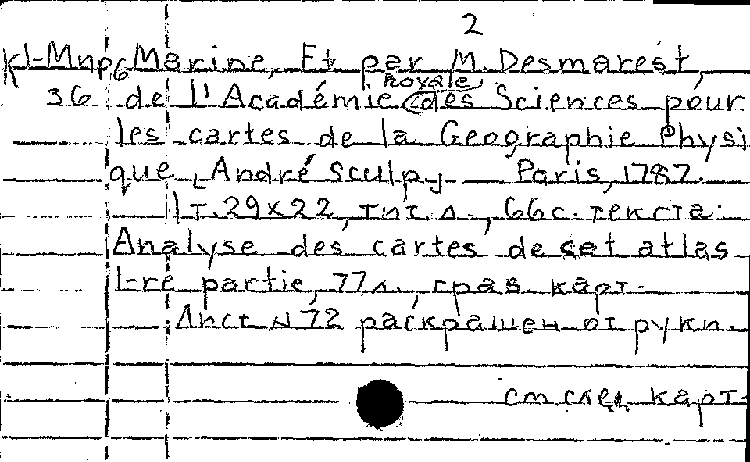 2
К1-Мир6 Marine, Et par M. Desmarest,
royale
36 de l'Académie des Sciences pour
les cartes de la Geographie Physi
que, André Sculp, Paris, 1787.
1т. 29x22, тит. л., 66с. текста:
Analyse des cartes de cet atlas
1-re partie, 77 л., грав. карт.
Лист N 72 раскрашен от руки.
см след. карт.